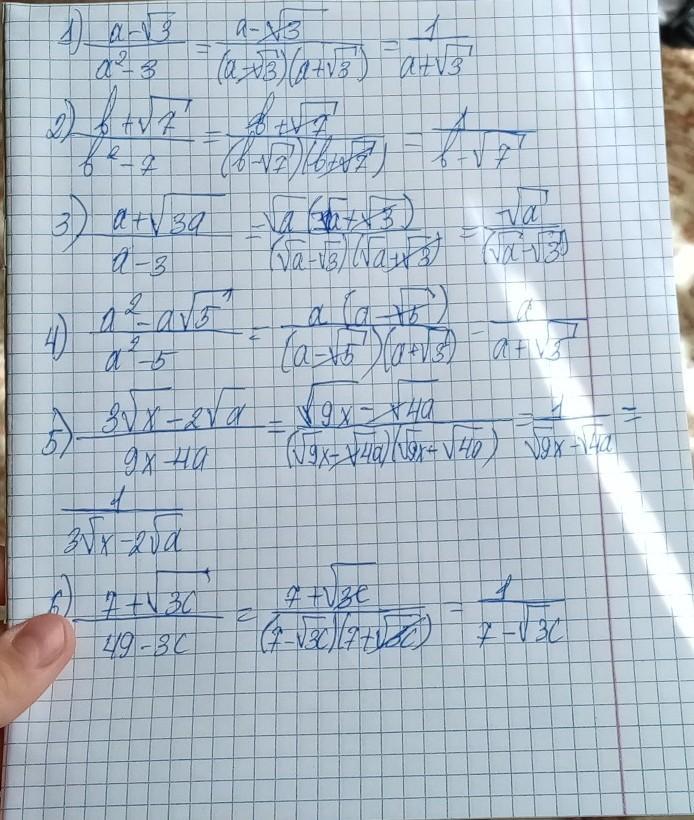 1) (a-√3)/(a²-3) = (a-√3)/((a-√3)(a+√3)) = 1/(a+√3)
2) (b+√7)/(b²-7) = (b+√7)/((b-√7)(b+√7)) = 1/(b-√7)
3) (a+√3a)/(a-3) = √a(√a+√3)/((√a-√3)(√a+√3)) = √a/(√a-√3)
4) (a²-a√5)/(a²-5) = a(a-√5)/((a-√5)(a+√3)) = a/(a+√3)
5) (3√x-2√a)/(9x-4a) = (√9x-√4a)/((√9x-√4a)(√9x+√4a)) = 1/(√9x+√4a) =
1/(3√x-2√a)
6) (7+√3c)/(49-3c) = (7+√3c)/((7-√3c)(7+√3c)) = 1/(7-√3c)